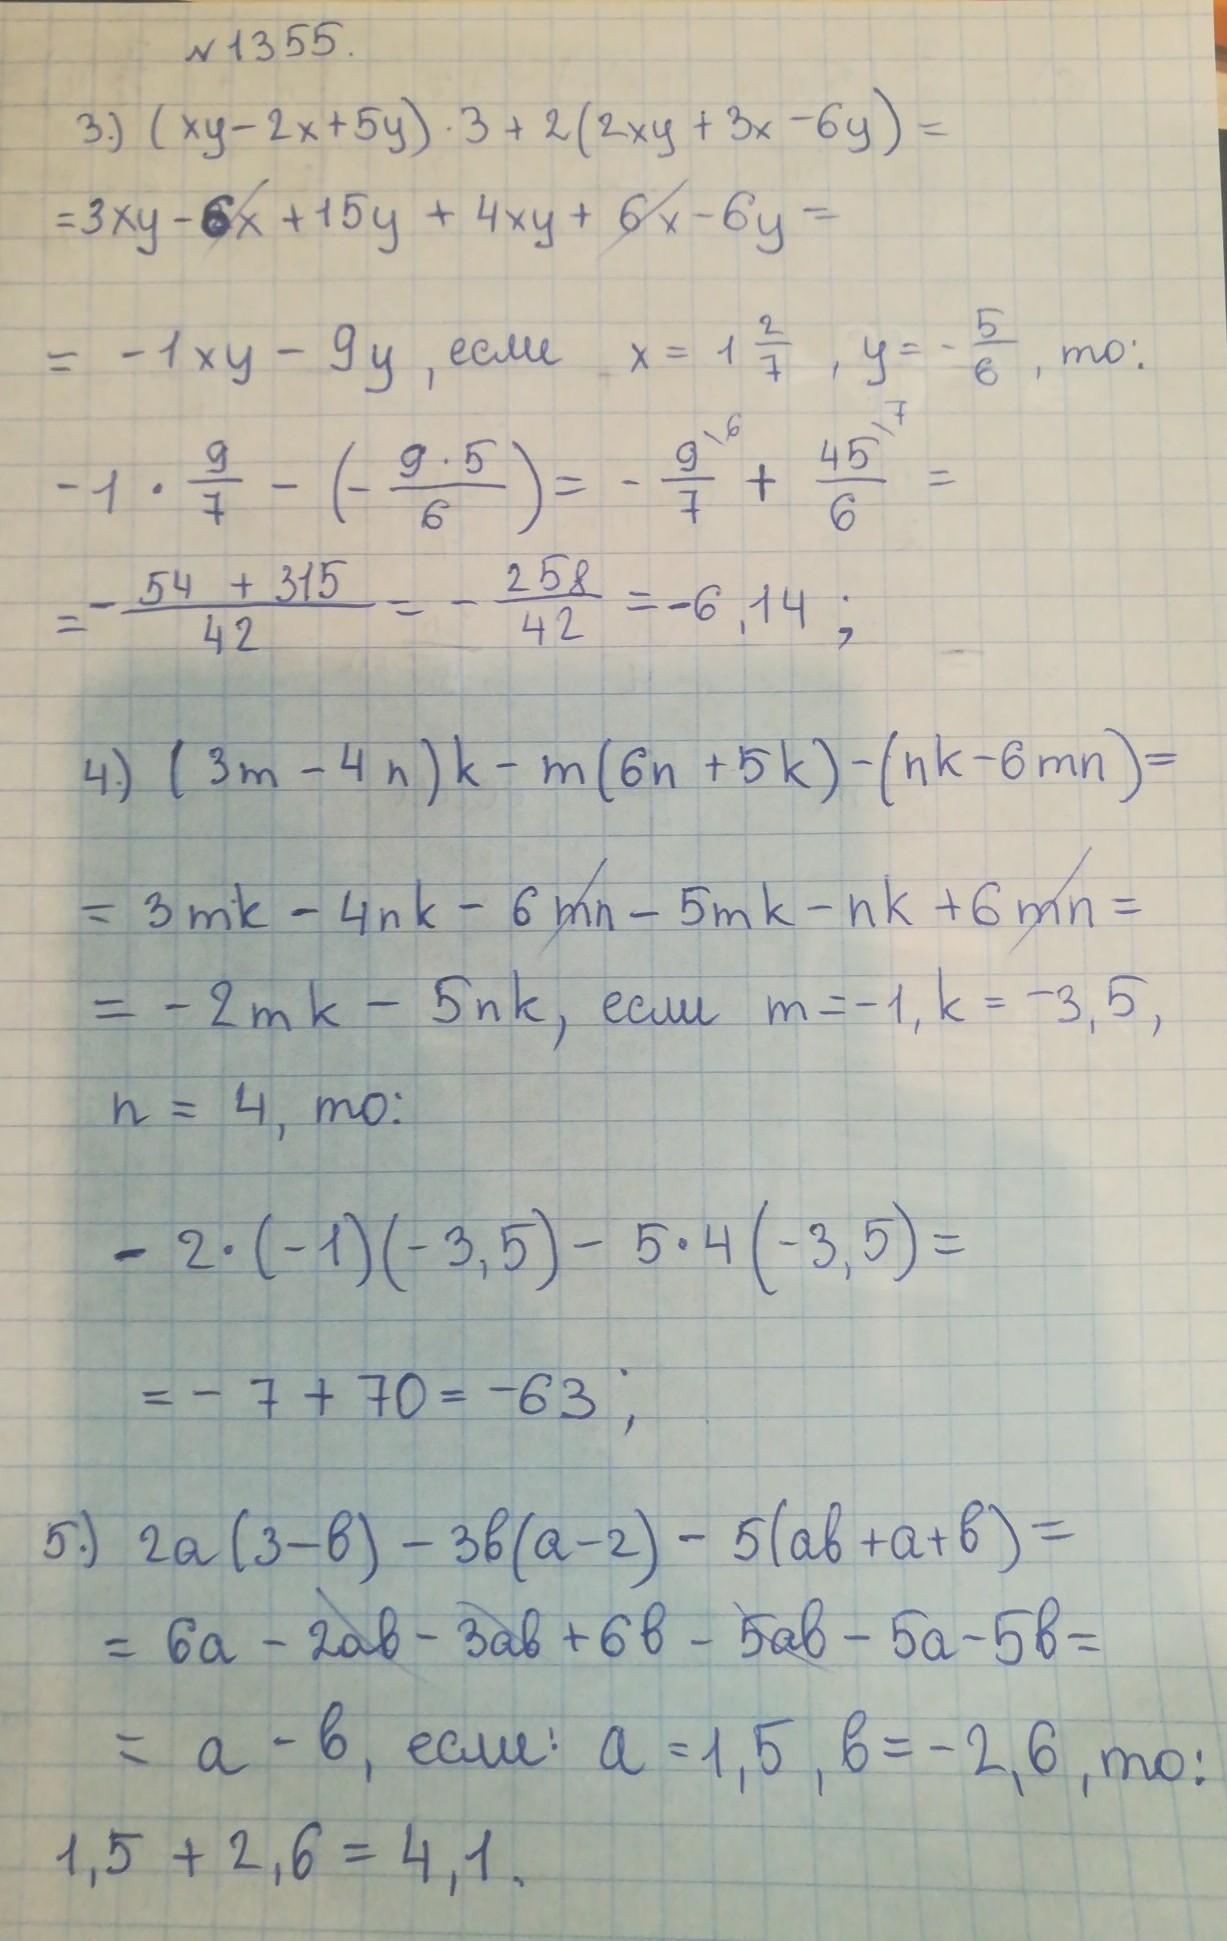 №1355.
3.) (xy - 2x + 5y) · 3 + 2(2xy + 3x - 6y) =
= 3xy - 6x + 15y + 4xy + 6x - 6y =
= -1xy - 9y, если x = 1 2/7, y = - 5/6, то:
-1 · 9/7 - (- 9·5/6) = - 9\6/7 + 45\7/6 =
= - 54 + 315/42 = - 258/42 = -6,14;
4.) (3m - 4n)k - m(6n + 5k) - (nk - 6mn) =
= 3mk - 4nk - 6mn - 5mk - nk + 6mn =
= -2mk - 5nk, если m = -1, k = -3,5,
n = 4, то:
- 2 · (-1)(-3,5) - 5 · 4(-3,5) =
= - 7 + 70 = -63;
5.) 2a(3 - в) - 3в(a - 2) - 5(aв + a + в) =
= 6a - 2aв - 3aв + 6в - 5aв - 5a - 5в =
= a - в, если: a = 1,5, в = -2,6, то:
1,5 + 2,6 = 4,1.